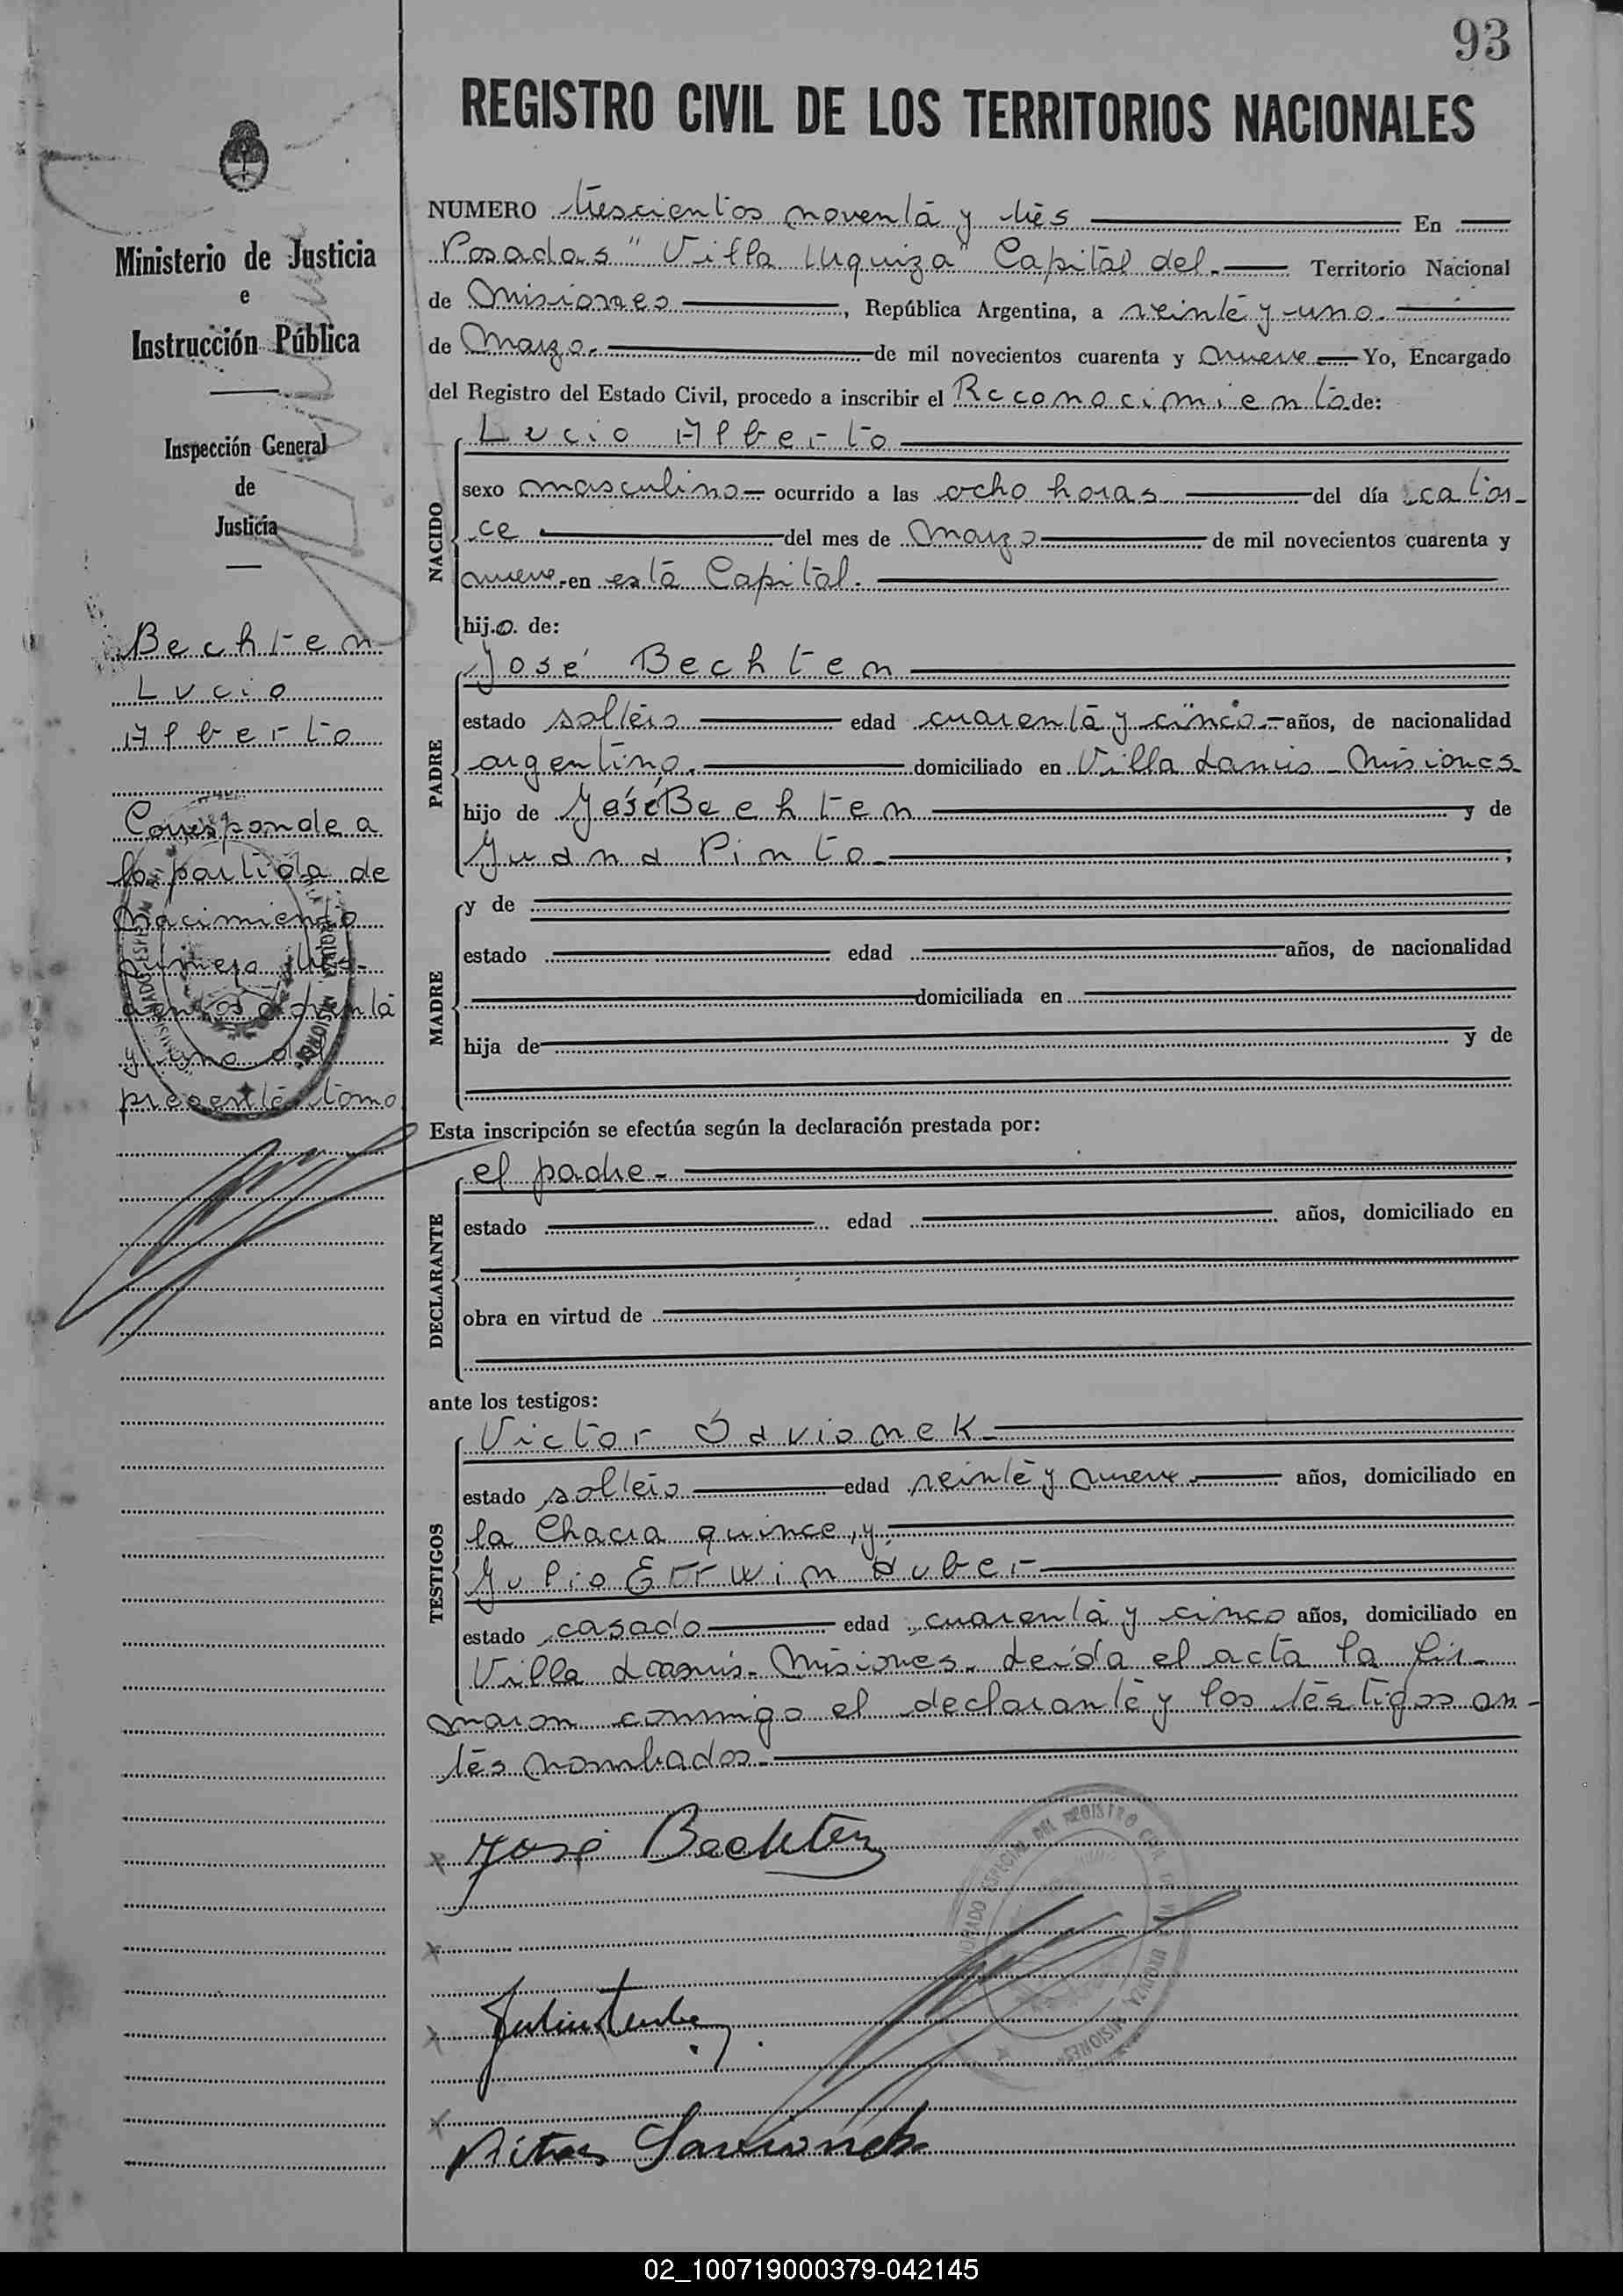 93
REGISTRO CIVIL DE LOS TERRITORIOS NACIONALES
Ministerio de Justicia
e
Instrucción Pública
Inspección General
de
Justicia
Bechten
Lucio
Alberto
Corresponde a
la partida de
nacimiento
número tres-
cientos noventa
y uno del
presente tomo
NUMERO trescientos noventa y tres En
Posadas "Villa Urquiza" Capital del Territorio Nacional
de Misiones, República Argentina, a veinte y uno.
de Marzo.- de mil novecientos cuarenta y nueve Yo, Encargado
del Registro del Estado Civil, procedo a inscribir el Reconocimiento de:
NACIDO
Lucio Alberto
sexo masculino ocurrido a las ocho horas del día cator-
ce del mes de Marzo de mil novecientos cuarenta y
nueve-en esta Capital.
hijo. de:
PADRE
José Bechten
estado soltero edad cuarenta y cinco.-años, de nacionalidad
argentino. domiciliado en Villa Lanus-Misiones
hijo de José Bechten y de
Juana Pinto-;
MADRE
y de
estado edad años, de nacionalidad
domiciliada en
hija de y de
Esta inscripción se efectúa según la declaración prestada por:
DECLARANTE
el padre.-
estado edad años, domiciliado en
obra en virtud de
ante los testigos:
TESTIGOS
Victor Savionek-
estado soltero edad veinte y nueve años, domiciliado en
la Chacra quince, y
Julio Errwin Huber
estado casado edad cuarenta y cinco años, domiciliado en
Villa Lanus-Misiones. Leída el acta la fir-
maron conmigo el declarante y los testigos an-
tes nombrados.-
x José Bechten
x
x
x
Savionek
DEL REGISTRO CIVIL DE VILLA URQUIZA MISIONES
02_100719000379-042145